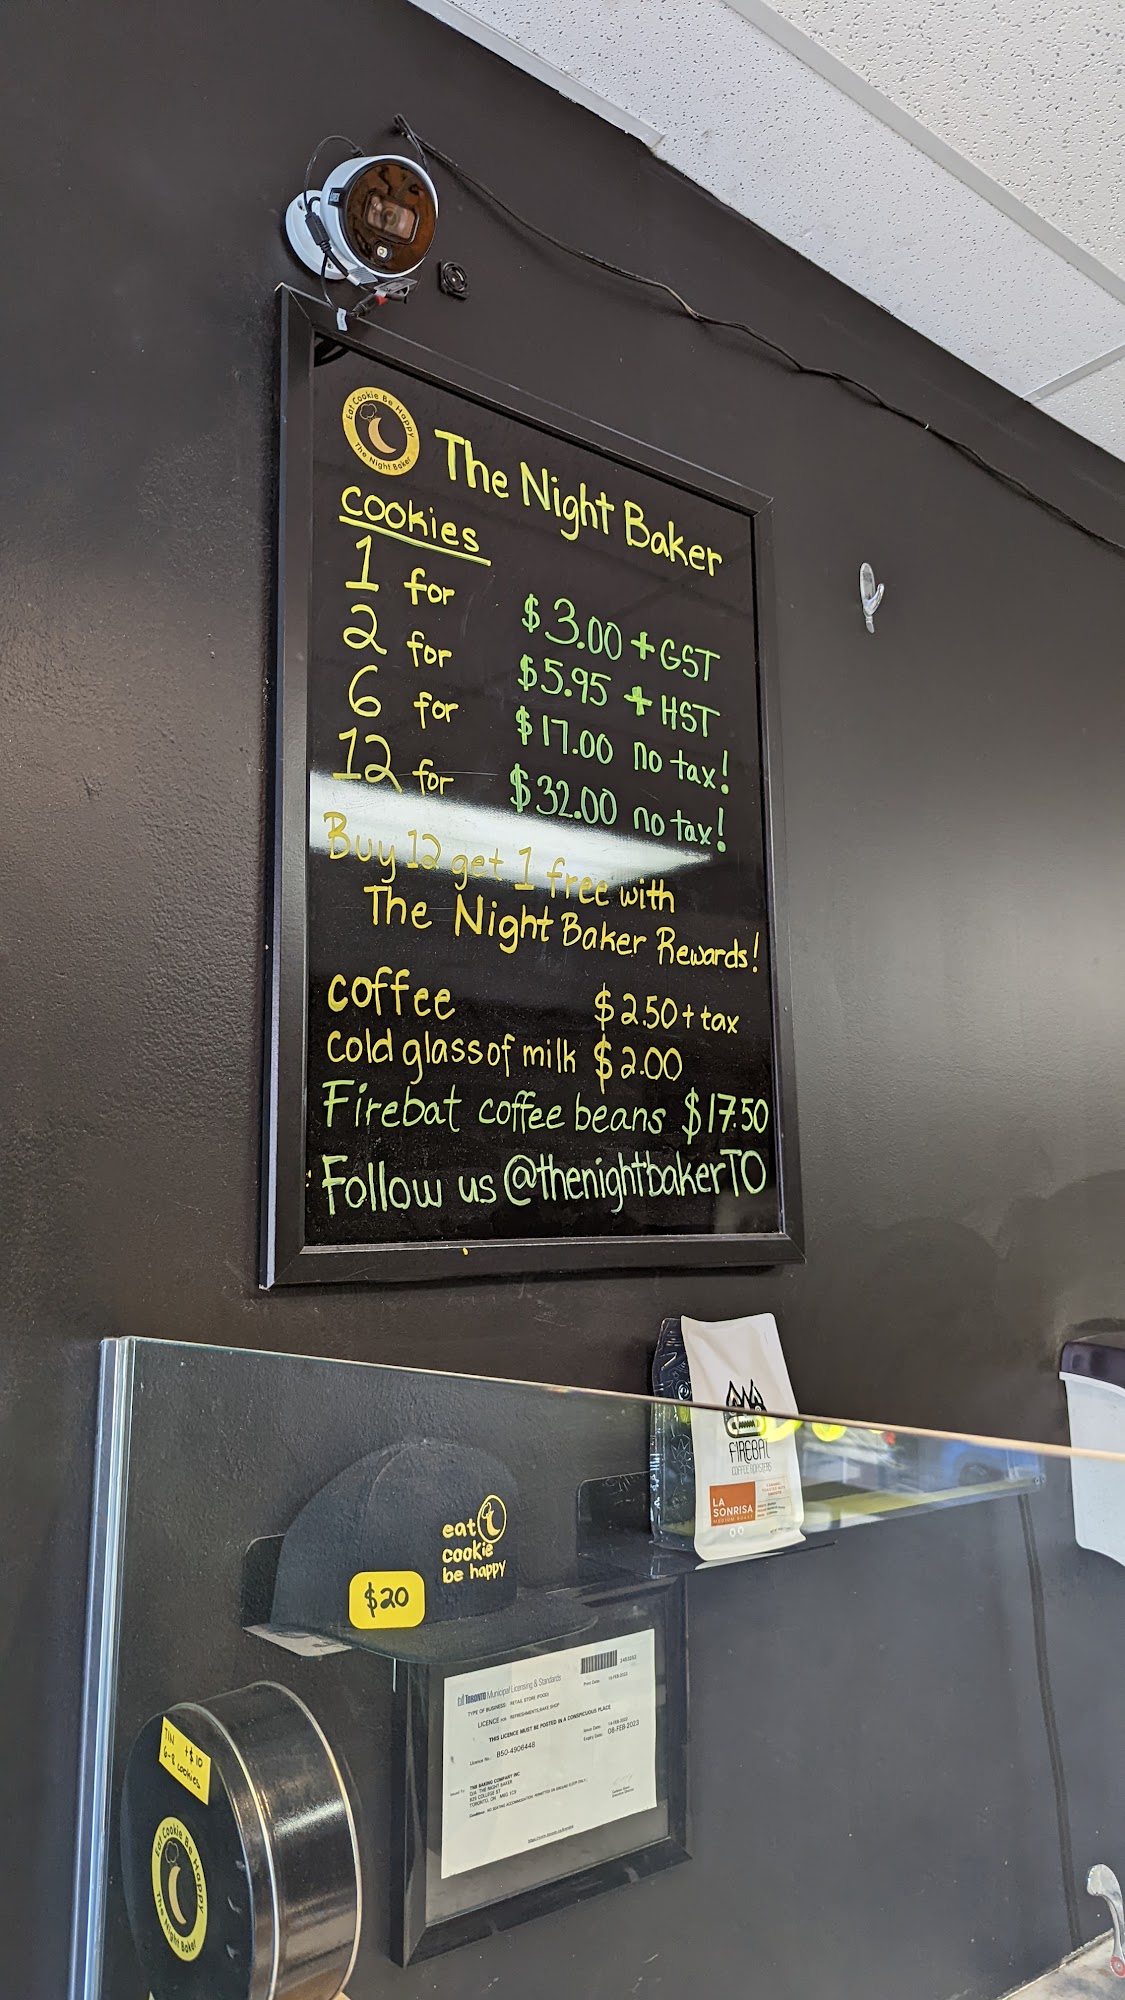 Eat Cookie Be Happy
The Night Baker
The Night Baker
cookies
1 for $3.00 + GST
2 for $5.95 + HST
6 for $17.00 no tax!
12 for $32.00 no tax!
Buy 12 get 1 free with
The Night Baker Rewards!
coffee $2.50 + tax
Cold glass of milk $2.00
Firebat coffee beans $17.50
Follow us @thenightbakerTO
FIREBAT
COFFEE ROASTERS
LA
SONRISA
MEDIUM ROAST
eat
cookie
be happy
$20
TIN +$10
6-8 cookies
Eat Cookie Be Happy
The Night Baker
TORONTO Municipal Licensing & Standards
TYPE OF BUSINESS: RETAIL STORE (FOOD)
LICENCE FOR: REFRESHMENTS,BAKE SHOP
THIS LICENCE MUST BE POSTED IN A CONSPICUOUS PLACE
Licence No.: B50-4906448
Expiry Date: 08-FEB-2023
TNB BAKING COMPANY INC
O/A: THE NIGHT BAKER
TORONTO, ON M6G 1C9